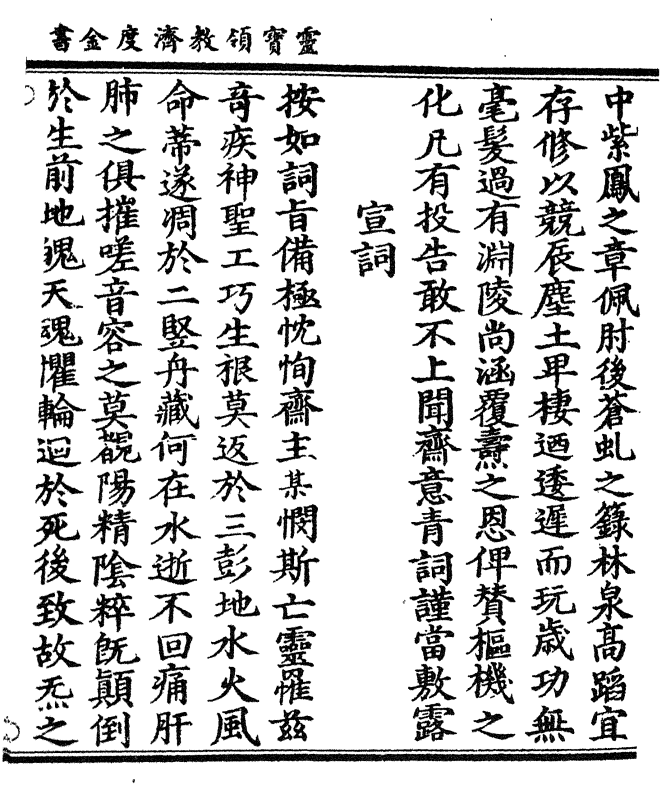 靈寶領教濟度金書
中紫鳳之章佩肘後蒼虬之籙林泉高蹈宜
存修以競辰塵土卑棲迺逶遲而玩歲功無
毫髮過有淵陵尚涵覆燾之恩俾贊樞機之
化凡有投告敢不上聞齋意青詞謹當敷露
宣詞
按如詞旨備極忱恂齋主某憫斯亡靈罹茲
竒疾神聖工巧生根莫返於三彭地水火風
命蒂遂凋於二竪舟藏何在水逝不回痛肝
肺之俱摧嗟音容之莫覩陽精陰粹旣顛倒
於生前地魄天魂懼輪迴於死後致故炁之